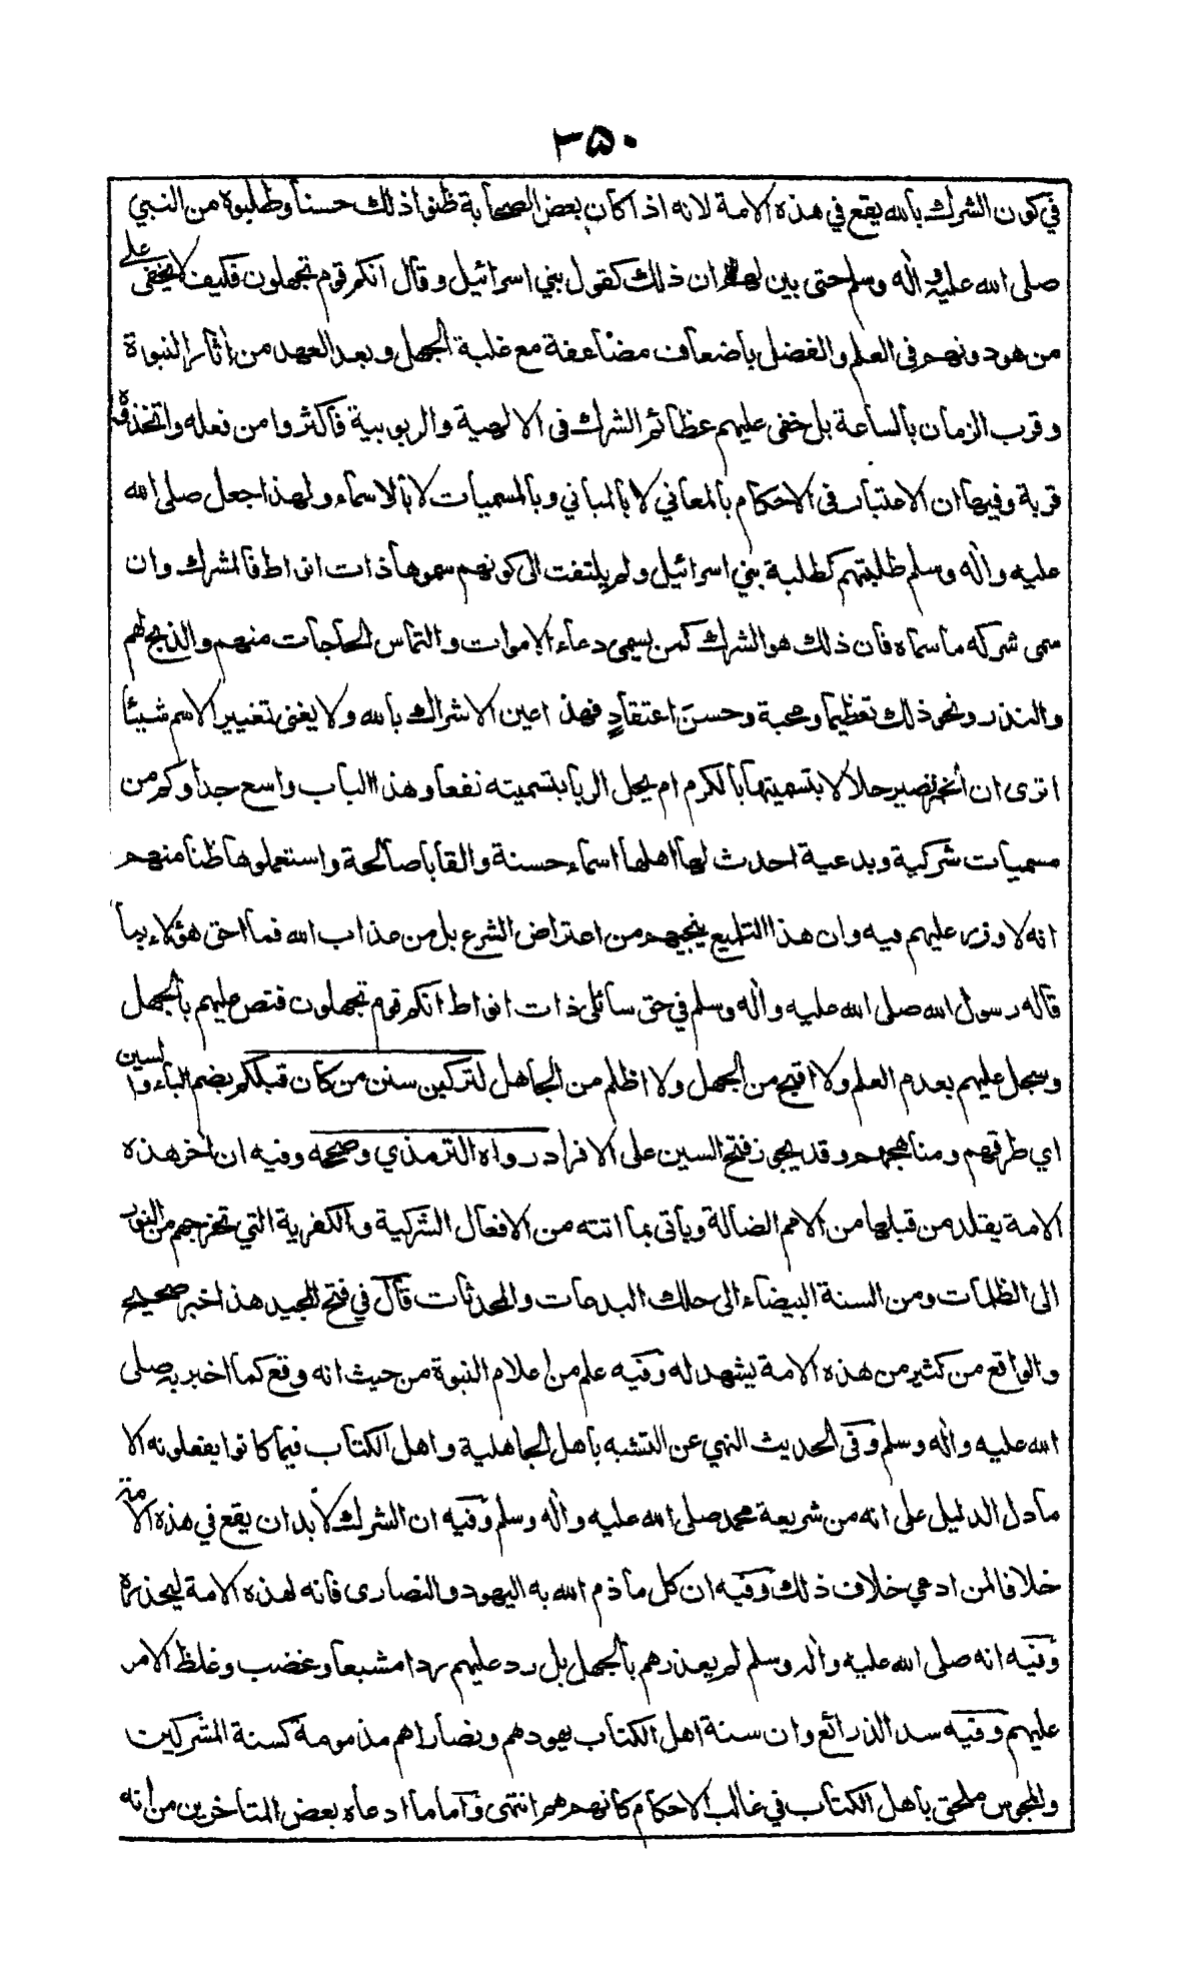 ٣٥٠
في كون الشرك بالله يقع في هذه الامة لانه اذا كان بعض الصحابة ظنوا ذلك حسنا وطلبوه من النبي
صلى الله عليه واله وسلم حتى بين لهم ان ذلك كقول بني اسرائيل وقال انكم قوم تجهلون فكيف لا يخفى على
من هو دونهم في العلم والفضل باضعاف مضاعفة مع غلبة الجهل وبعد العهد من اثار النبوة
وقرب الزمان بالساعة بل خفى عليهم عظائم الشرك فى الالهية والربوبية فاكثروا من فعله واتخذوه
قربة وفيها ان الاعتبار فى الاحكام بالمعاني لا بالمباني وبالمسميات لا بالاسماء ولهذا جعل صلى الله
عليه واله وسلم طلبتهم كطلبة بني اسرائيل ولم يلتفت الى كونهم سموها ذات انواط فالمشرك وان
سمى شركه ما سماه فان ذلك هو الشرك كمن يسمى دعاء الاموات والتماس الحاجات منهم والذبح لهم
والنذر ونحو ذلك تعظيما ومحبة وحسن اعتقادٍ فهذا عين الاشراك بالله ولا يغنى تغيير الاسم شيئا
اترى ان الخمر تصير حلالا بتسميتها بالكرم ام يحل الربا بتسميته نفعا وهذا الباب واسع جدا وكم من
مسميات شركية وبدعية احدث لها اهلها اسماء حسنة والقابا صالحة واستعملوها ظنا منهم
انه لا وزر عليهم فيه وان هذا التلميع ينجيهم من اعتراض الشرع بل من عذاب الله فما احق هؤلاء بما
قاله رسول الله صلى الله عليه واله وسلم في حق سائلى ذات انواط انكم قوم تجهلون فنص عليهم بالجهل
وسجل عليهم بعدم العلم ولا اقبح من الجهل ولا اظلم من الجاهل لتركبن سنن من كان قبلكم بضم الباء والسين
اي طرقهم ومناهجهم وقد يجوز فتح السين على الافراد رواه الترمذي وصححه وفيه ان اخر هذه
الامة يقلد من قبلها من الامم الضالة وياتى بما اتته من الافعال الشركية والكفرية التي تخرجهم من النور
الى الظلمات ومن السنة البيضاء الى حلك البدعات والمحدثات قال في فتح المجيد هذا خبر صحيح
والواقع من كثير من هذه الامة يشهد له وفيه علم من اعلام النبوة من حيث انه وقع كما اخبر به صلى
الله عليه واله وسلم وفى الحديث النهي عن التشبه باهل الجاهلية واهل الكتاب فيما كانوا يفعلونه الا
ما دل الدليل على انه من شريعة محمد صلى الله عليه واله وسلم وفيه ان الشرك لا بد ان يقع في هذه الامة
خلافا لمن ادعي خلاف ذلك وفيه ان كل ما ذم الله به اليهود والنصارى فانه لهذه الامة ليحذره
وفيه انه صلى الله عليه واله وسلم لم يعذرهم بالجهل بل رد عليهم ردا مشبعا وغضب وغلظ الامر
عليهم وفيه سد الذرائع وان سنة اهل الكتاب يهودهم ونصاراهم مذمومة كسنة المشركين
والمجوس ملحق باهل الكتاب في غالب الاحكام كانهم هم انتهى واما ما ادعاه بعض المتاخرين من انه